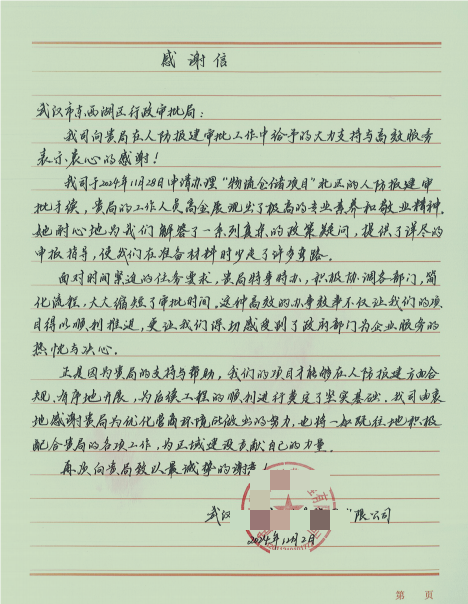 感谢信
武汉市东西湖区行政审批局：
我司向贵局在人防报建审批工作中给予的大力支持与高效服务
表示衷心的感谢！
我司于2024年11月28日申请办理“物流仓储项目”北区的人防报建审
批手续，贵局的工作人员高金展现出了极高的专业素养和敬业精神。
她耐心地为我们解答了一系列复杂的政策疑问，提供了详尽的
申报指导，使我们在准备材料时少走了许多弯路。
面对时间紧迫的任务要求，贵局特事特办，积极协调各部门，简
化流程，大大缩短了审批时间。这种高效的办事效率不仅让我们的项
目得以顺利推进，更让我们深切感受到了政府部门为企业服务的
热忱与决心。
正是因为贵局的支持与帮助，我们的项目才能够在人防报建方面合
规、有序地开展，为后续工程的顺利进行奠定了坚实基础。我司由衷
地感谢贵局为优化营商环境所做出的努力，也将一如既往地积极
配合贵局的各项工作，为区域建设贡献自己的力量。
再次向贵局致以最诚挚的谢意！
武汉 限公司
2024年12月2日
第 页